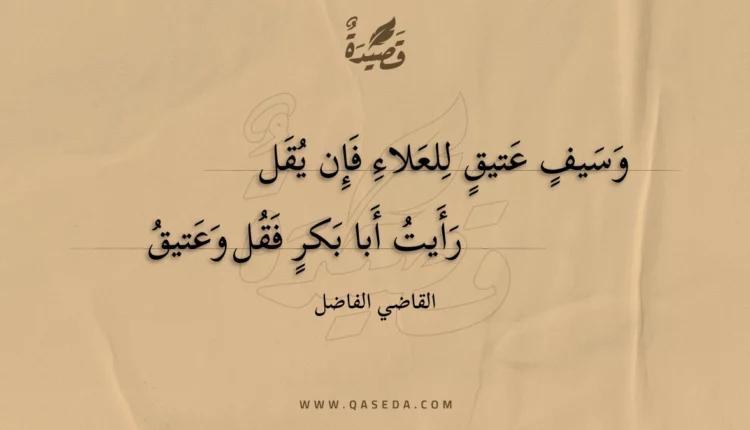 قَصِيدَةٌ
وَسَيفٍ عَتيقٍ لِلعَلاءِ فَإِن يُقَل
رَأَيتُ أَبا بَكرٍ فَقُل وَعَتيقُ
القاضي الفاضل
WWW.QASEDA.COM